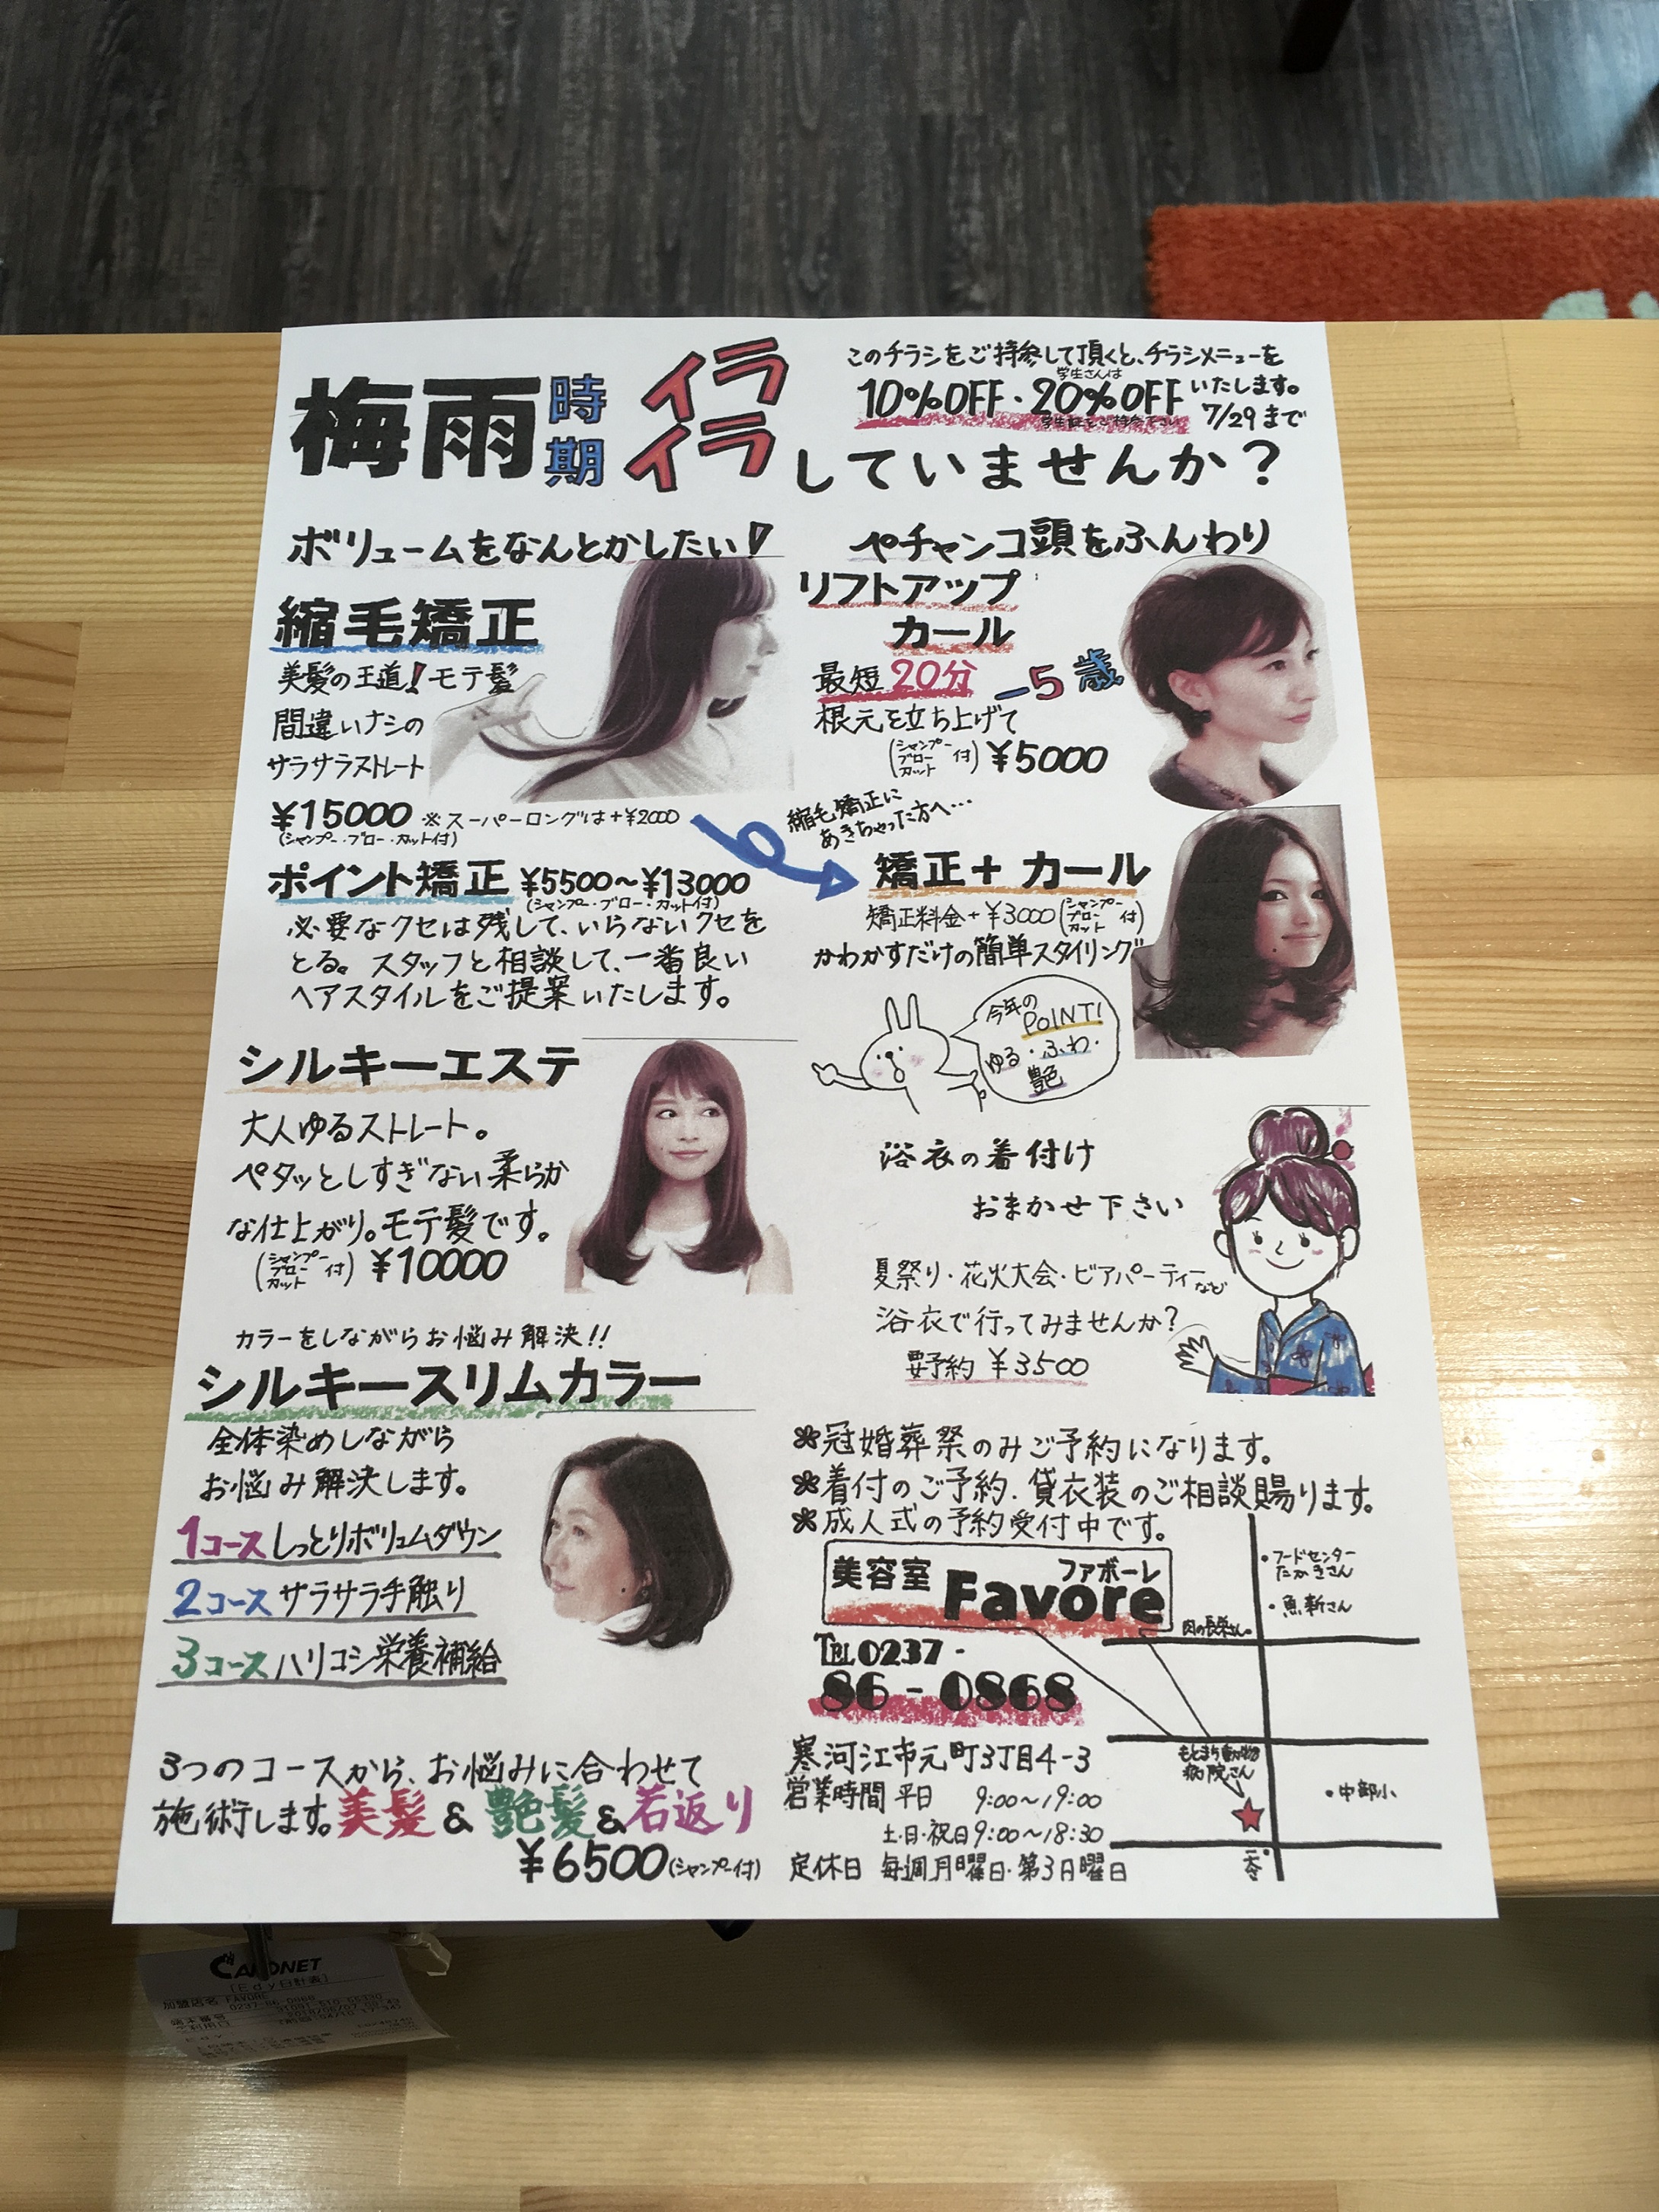 梅雨時期イライラしていませんか?
このチラシをご持参して頂くと、チラシメニューを
学生さんは
10%OFF・20%OFFいたします。
学生証をご持参下さい
7/29まで
ボリュームをなんとかしたい!
縮毛矯正
美髪の王道!モテ髪
間違いナシの
サラサラストレート
¥15000 ※スーパーロングは+¥2000
(シャンプー・ブロー・カット付)
ポイント矯正 ¥5500〜¥13000
(シャンプー・ブロー・カット付)
必要なクセは残して、いらないクセを
とる。スタッフと相談して、一番良い
ヘアスタイルをご提案いたします。
シルキーエステ
大人ゆるストレート。
ペタッとしすぎない柔らか
な仕上がり。モテ髪です。
(シャンプー ブロー カット 付) ¥10000
カラーをしながらお悩み解決!!
シルキースリムカラー
全体染めしながら
お悩み解決します。
1コース しっとりボリュムダウン
2コース サラサラ手触り
3コース ハリコシ栄養補給
3つのコースから、お悩みに合わせて
施術します。美髪&艶髪&若返り
¥6500(シャンプー付)
ペチャンコ頭をふんわり
リフトアップ
カール
最短20分 -5歳
根元を立ち上げて
(シャンプー ブロー カット 付) ¥5000
縮毛矯正に
あきちゃった方へ…
矯正+カール
矯正料金+¥3000(シャンプー ブロー カット 付)
かわかすだけの簡単スタイリング
今年の
POINT!
ゆる・ふわ・
艶
浴衣の着付け
おまかせ下さい
夏祭り・花火大会・ビアパーティーなど
浴衣で行ってみませんか?
要予約 ¥3500
✽冠婚葬祭のみご予約になります。
✽着付のご予約、貸衣装のご相談賜ります。
✽成人式の予約受付中です。
美容室 ファボーレ
Favore
TEL 0237-
86-0868
寒河江市元町3丁目4-3
営業時間 平日 9:00〜19:00
土・日・祝日 9:00〜18:30
定休日 毎週月曜日・第3日曜日
・フードセンター
たかきさん
・魚新さん
肉の長榮さん・
もとまち動物
病院さん
・中部小
CARDNET
[Edy日計表]
加盟店名 FAVORE
0237-86-0868
端末番号